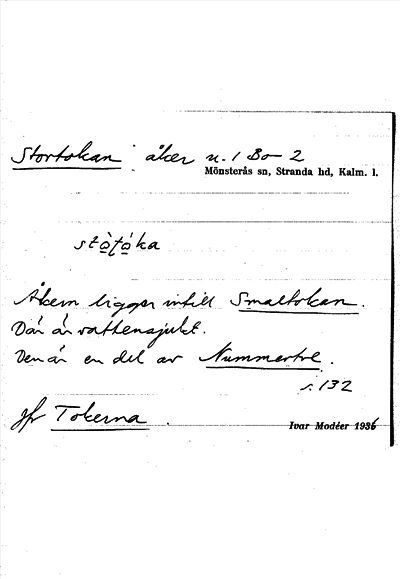 Stortokan åker n. 1 Bo-2
Mönsterås sn, Stranda hd, Kalm. l.
stò̱ţò̱ka
Åkern ligger intill Smaltokan.
Där är vattensjukt.
Den är en del av Nummertre.
s. 132
Jfr Tokerna.
Ivar Modéer 1936